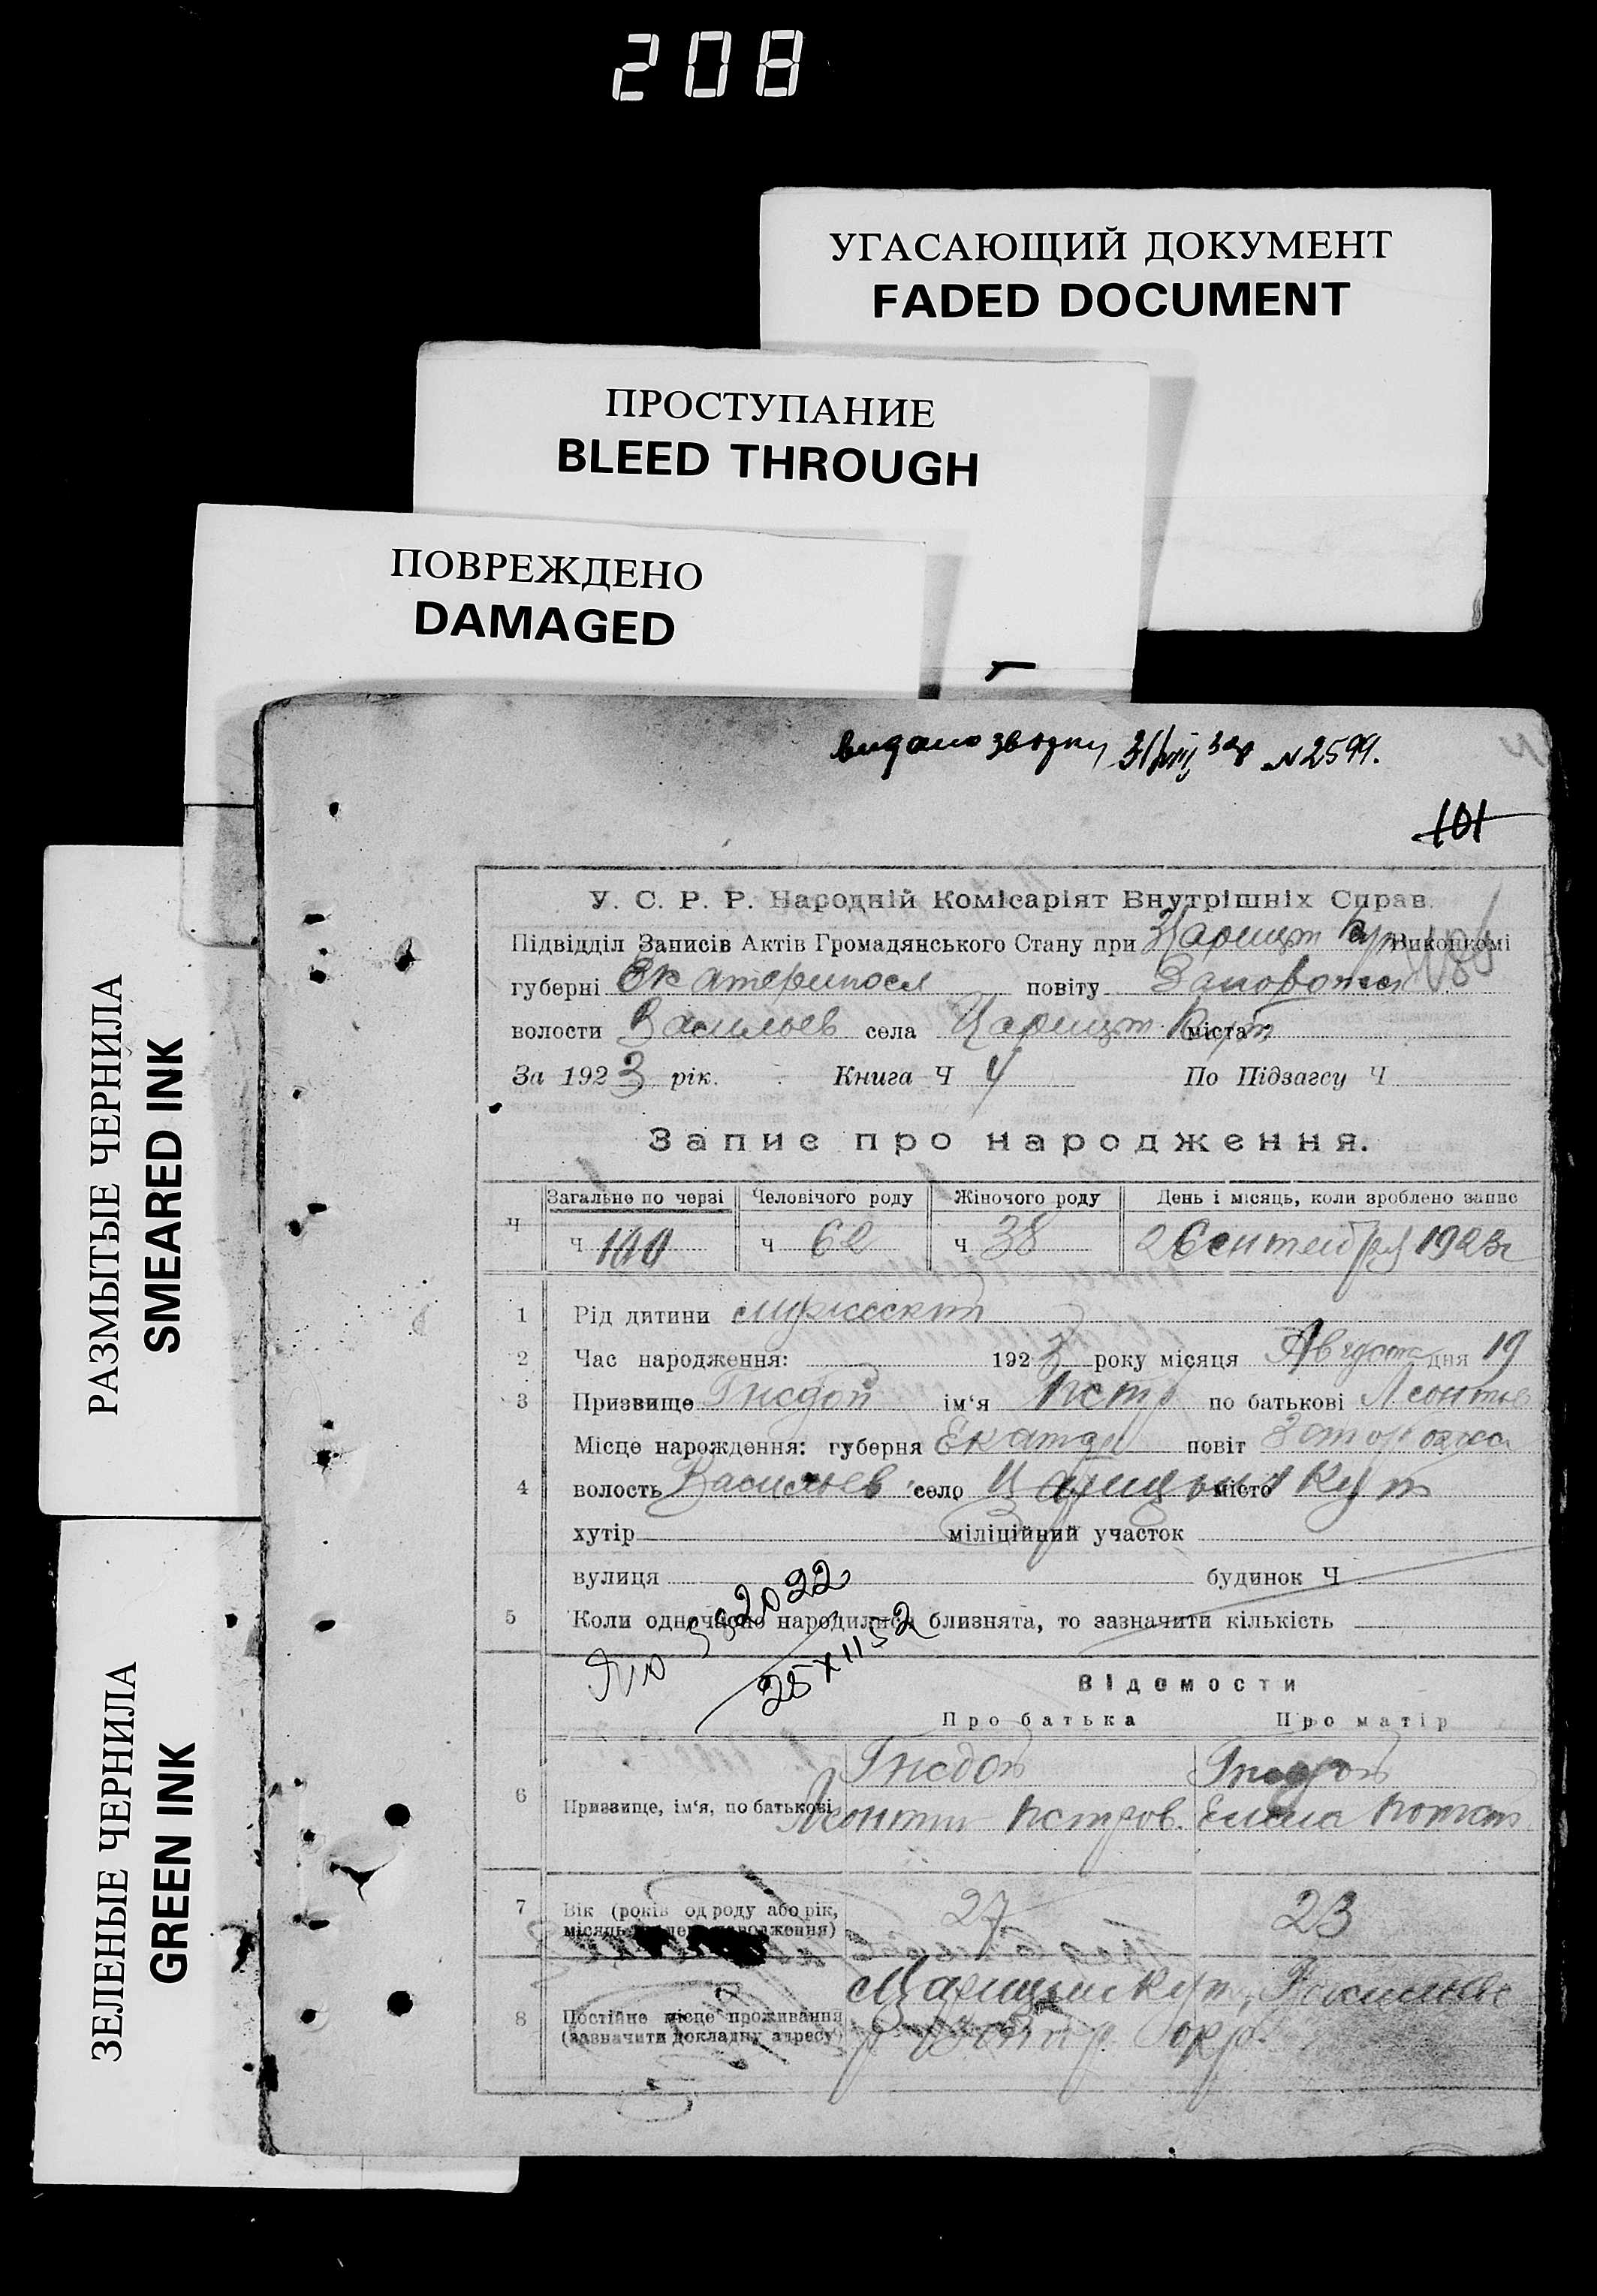 208
УГАСАЮЩИЙ ДОКУМЕНТ
FADED DOCUMENT
ПРОСТУПАНИЕ
BLEED THROUGH
ПОВРЕЖДЕНО
DAMAGED
РАЗМЫТЫЕ ЧЕРНИЛА
SMEARED INK
ЗЕЛЕНЫЕ ЧЕРНИЛА
GREEN INK
видано № 2599.
101
У. С. Р. Р. Народній Комісаріят Внутрішніх Справ.
Підвідділ Записів Актів Громадянського Стану при Царицын Кут Виконкомі
губерні Екатериносл повіту Запорожск
волости Васильев села Царицын Кут міста
За 1923 рік. Книга Ч 4 По Підзагсу Ч
Запис про народження.
Загальне по черзі Человічого роду Жіночого роду День і місяць, коли зроблено запис
Ч Ч 100 Ч 62 Ч 38 2 Сентября 1923г
1 Рід дитини мужеский
2 Час народження: 1923 року місяця Августа дня 19
3 Призвище Гнедой ім'я Петр по батькові Леонтьев
Місце нарождення: губерня Екатер повіт
4 волость Васильев село Царицын Кут місто
хутір міліційний участок
вулиця будинок Ч
5 Коли одночасно народилися близнята, то зазначити кількість
582022
25 X 1152
Відомости
Про батька Про матір
Гнедой Гнедой
6 Призвище, ім'я, по батькові Леонтий Петров. Елена
7 Вік (років од роду або рік, 27 23
місяць день народження)
Царицын Кут, Васильевс
8 Постійне місце проживання
(зазначити докладну адресу) окр.